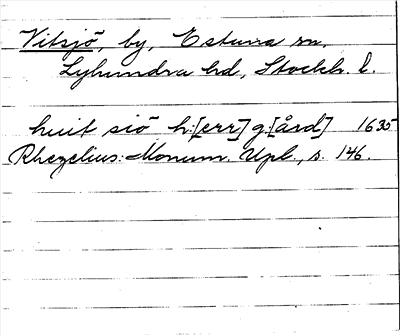 Vitsjö, by, Estuna sn.
Lyhundra hd, Stockh. l.
huit siö h:[err] g:[ård] 1635
Rhezelius: Monum. Upl., s. 146.